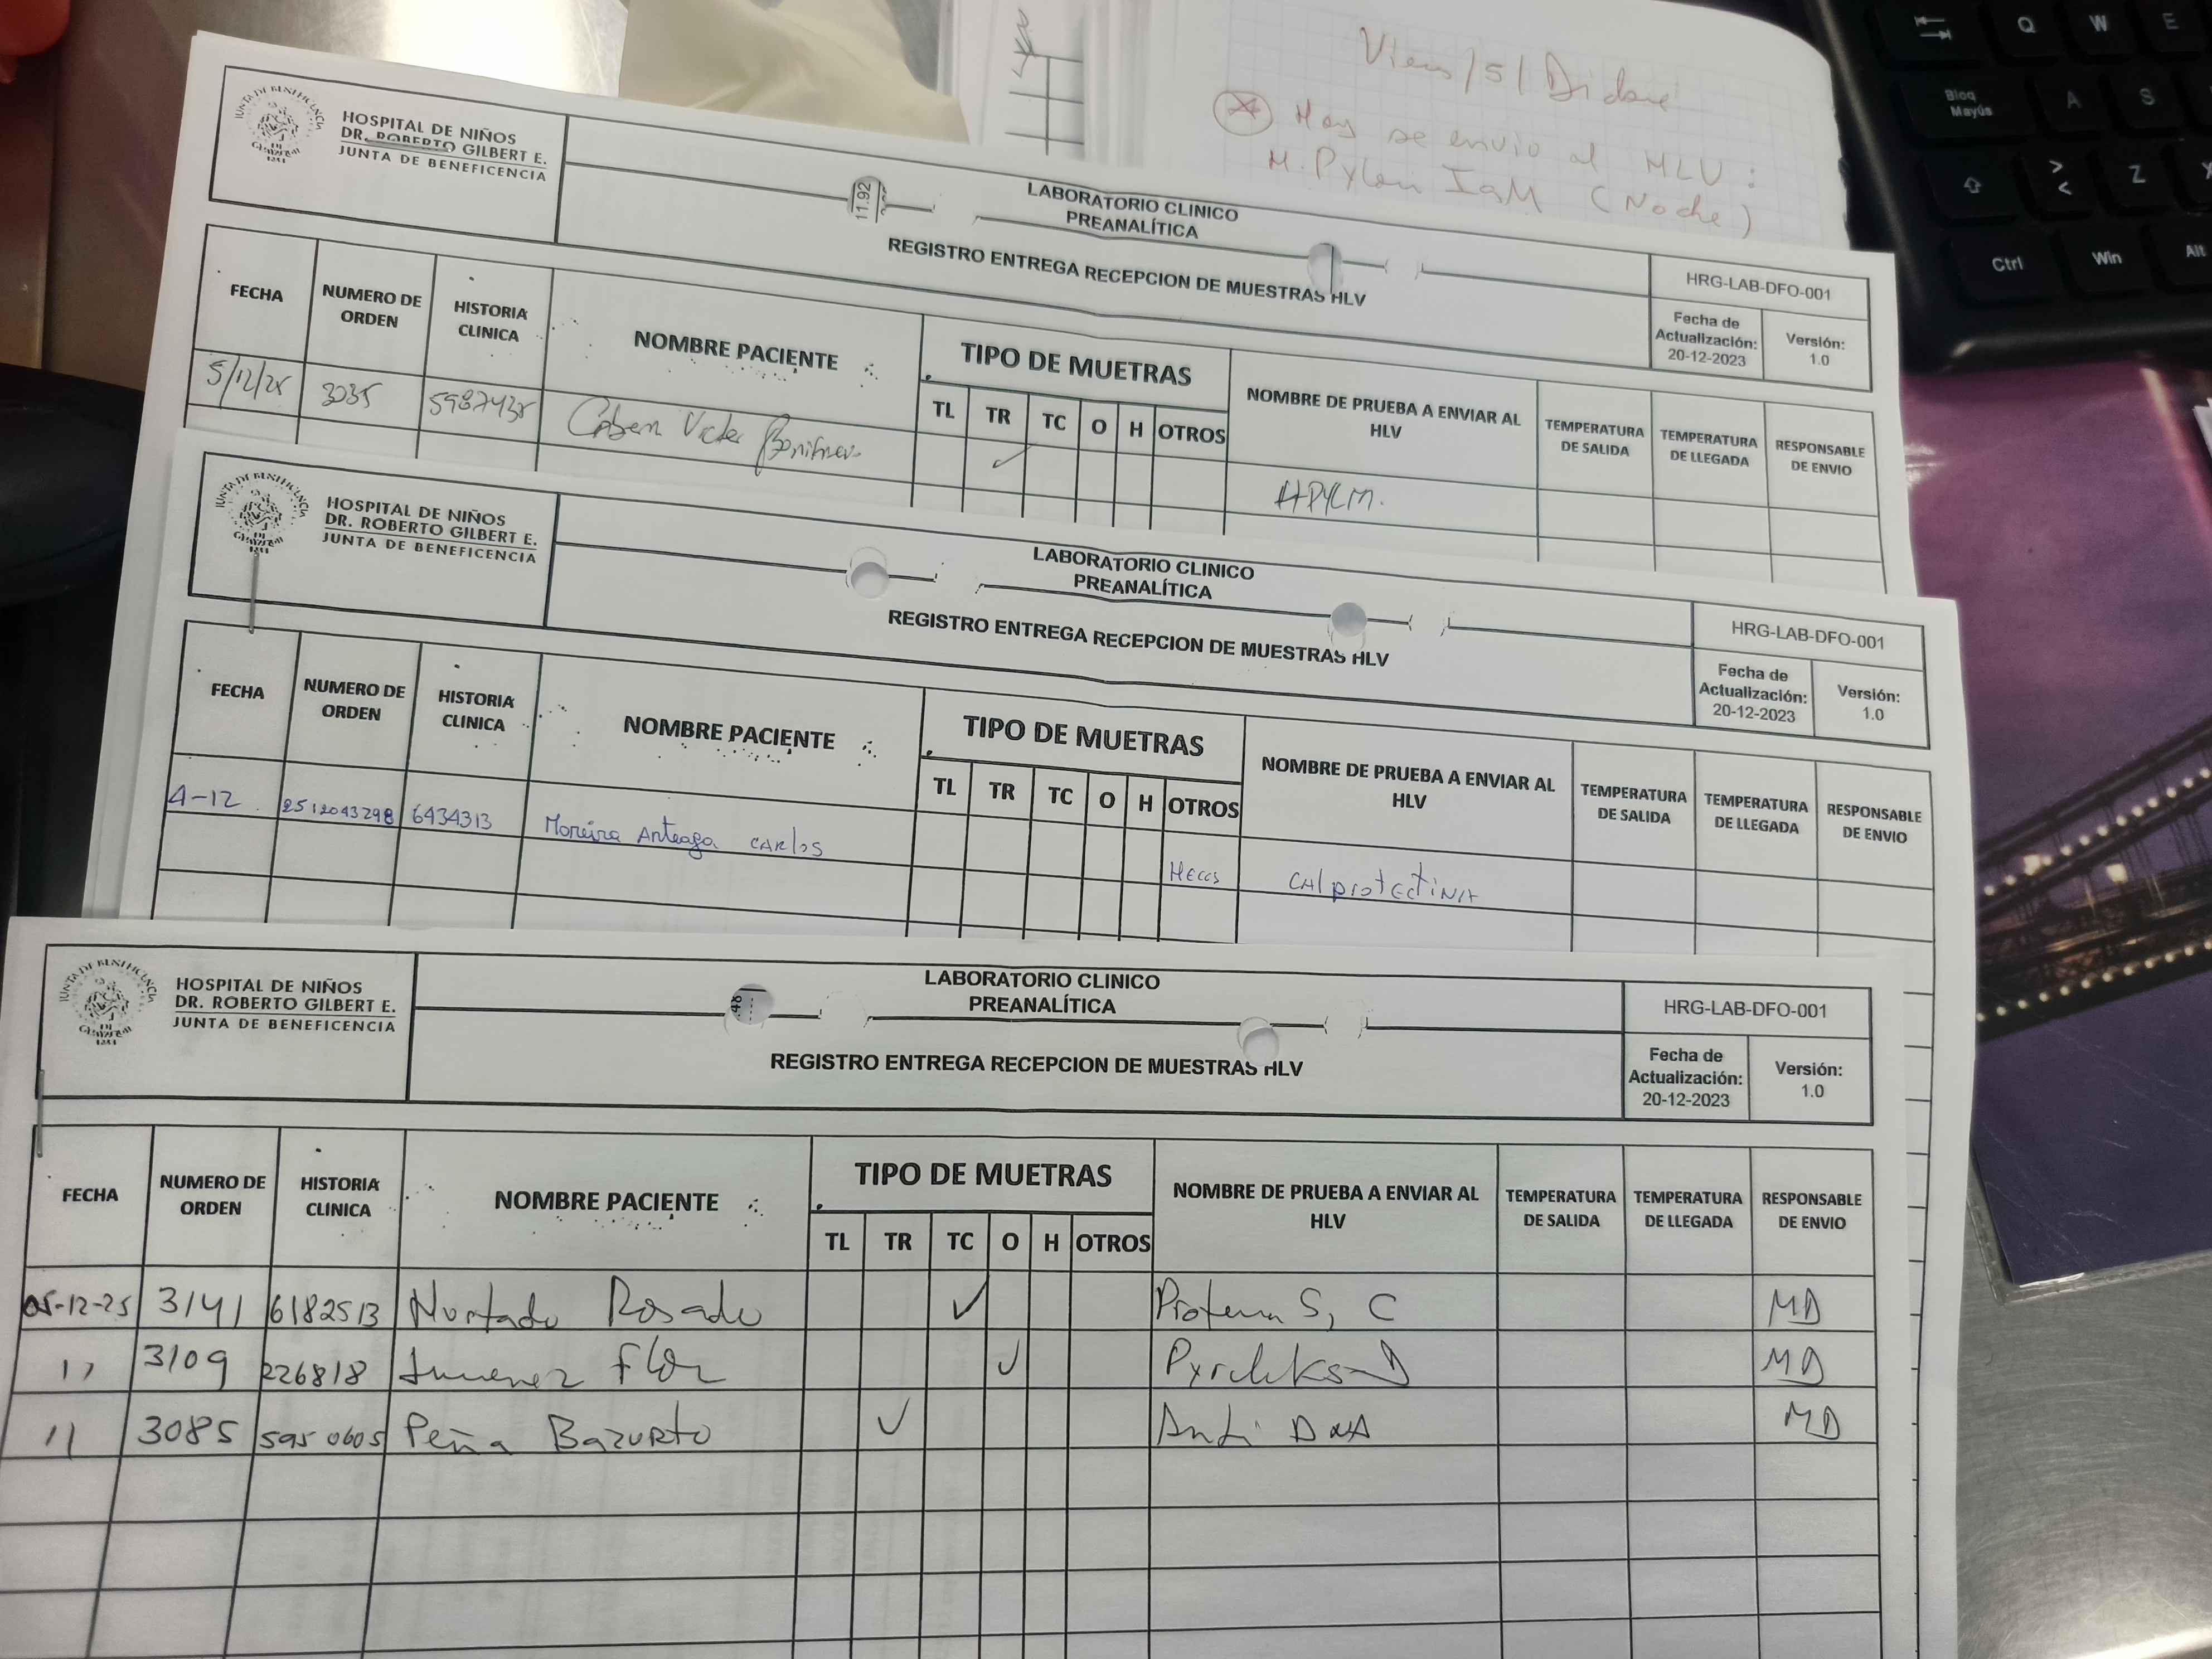 Viern/5/Dic
Hoy se envio al HLV:
H. Pylori IgM (Noche)
Q W E
Bloq Mayús A S
> < Z X
Ctrl Win Alt
JUNTA DE BENEFICENCIA DE GUAYAQUIL
HOSPITAL DE NIÑOS
DR. ROBERTO GILBERT E.
JUNTA DE BENEFICENCIA
11.92
LABORATORIO CLINICO
PREANALÍTICA
REGISTRO ENTREGA RECEPCION DE MUESTRAS HLV
HRG-LAB-DFO-001
Fecha de Actualización: 20-12-2023
Versión: 1.0
FECHA NUMERO DE ORDEN HISTORIA CLINICA NOMBRE PACIENTE TIPO DE MUETRAS NOMBRE DE PRUEBA A ENVIAR AL HLV TEMPERATURA DE SALIDA TEMPERATURA DE LLEGADA RESPONSABLE DE ENVIO
TL TR TC O H OTROS
5/12/25 3035 5987435 ✓ HPYLM.
JUNTA DE BENEFICENCIA DE GUAYAQUIL
HOSPITAL DE NIÑOS
DR. ROBERTO GILBERT E.
JUNTA DE BENEFICENCIA
LABORATORIO CLINICO
PREANALÍTICA
REGISTRO ENTREGA RECEPCION DE MUESTRAS HLV
HRG-LAB-DFO-001
Fecha de Actualización: 20-12-2023
Versión: 1.0
FECHA NUMERO DE ORDEN HISTORIA CLINICA NOMBRE PACIENTE TIPO DE MUETRAS NOMBRE DE PRUEBA A ENVIAR AL HLV TEMPERATURA DE SALIDA TEMPERATURA DE LLEGADA RESPONSABLE DE ENVIO
TL TR TC O H OTROS
4-12. 2512043298 6434313 Moreira Arteaga CARLOS Heces CAlprotectiNA
JUNTA DE BENEFICENCIA DE GUAYAQUIL
HOSPITAL DE NIÑOS
DR. ROBERTO GILBERT E.
JUNTA DE BENEFICENCIA
LABORATORIO CLINICO
PREANALÍTICA
REGISTRO ENTREGA RECEPCION DE MUESTRAS HLV
HRG-LAB-DFO-001
Fecha de Actualización: 20-12-2023
Versión: 1.0
FECHA NUMERO DE ORDEN HISTORIA CLINICA NOMBRE PACIENTE TIPO DE MUETRAS NOMBRE DE PRUEBA A ENVIAR AL HLV TEMPERATURA DE SALIDA TEMPERATURA DE LLEGADA RESPONSABLE DE ENVIO
TL TR TC O H OTROS
05-12-25 3141 6182513 Hurtado Rosado ✓ Proteina S, C MD
11 3109 226818 Jimenez Flor ✓ MD
11 3085 5950605 Peña Bazurto ✓ Anti DNA MD